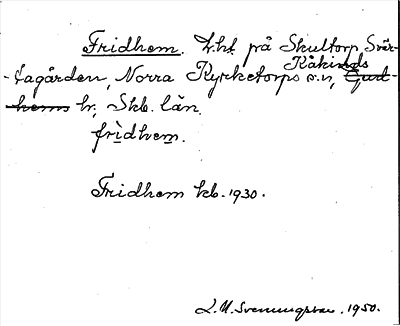 Fridhem. Lht på Skultorp, Svär-
Kåkinds
-tagården, Norra Kyrketorps s:n, Gud-
hems hr, Skb. län.
fridhem.
Fridhem kb. 1930.
L. M. Svenungsson. 1950.